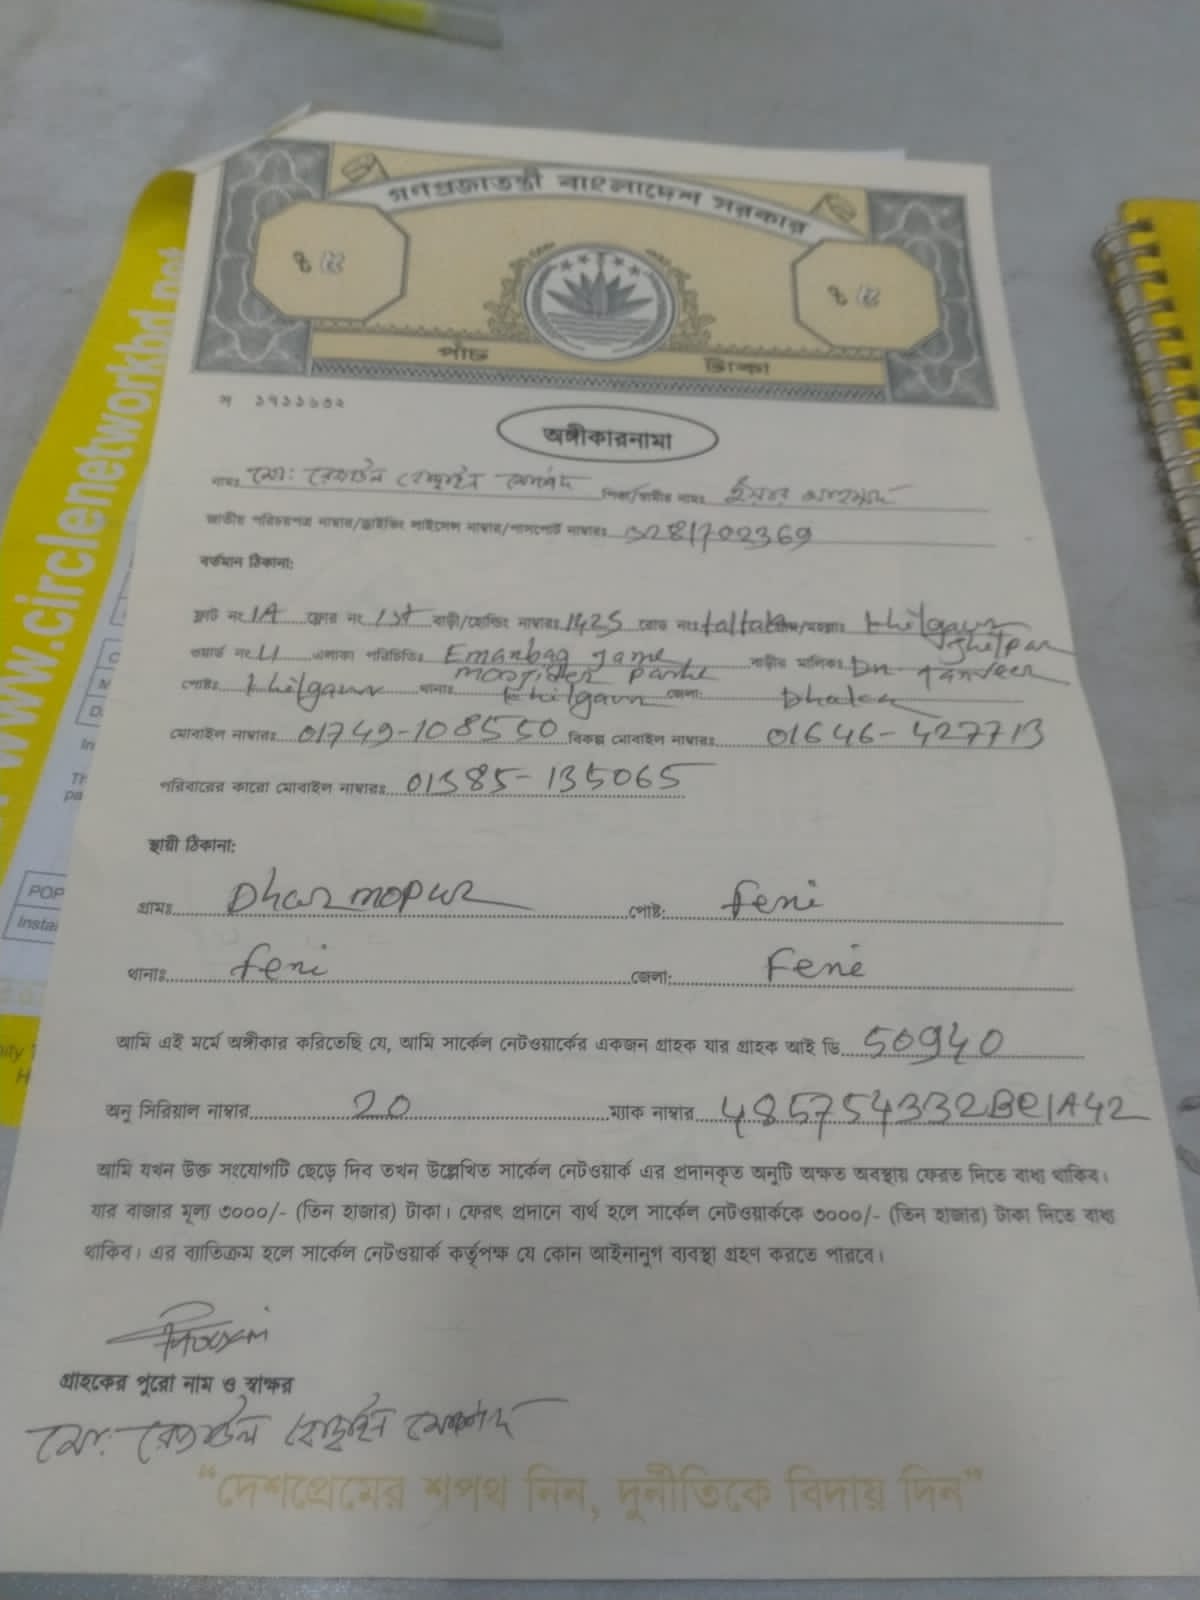 গণপ্রজাতন্ত্রী বাংলাদেশ সরকার
পাঁচ টাকা
www.circlenetworkbd.net
অঙ্গীকারনামা
নামঃ মো: রেজাউল পিতা/স্বামীর নামঃ
জাতীয় পরিচয়পত্র নাম্বার/ড্রাইভিং লাইসেন্স নাম্বার/পাসপোর্ট নাম্বারঃ 3281702369
বর্তমান ঠিকানা:
ফ্লাট নং 1A ফ্লোর নং 1st বাড়ী/হোল্ডিং নাম্বারঃ 1425 রোড নংঃ Khilgaun
ওয়ার্ড নং এলাকা পরিচিতিঃ Emanbag Jame বাড়ীর মালিকঃ Dr Tanveer
পোষ্টঃ Khilgaun থানাঃ Khilgaun জেলা: Dhaka
মোবাইল নাম্বারঃ 01749-108550 বিকল্প মোবাইল নাম্বারঃ 01646-427713
পরিবারের কারো মোবাইল নাম্বারঃ 01385-135065
স্থায়ী ঠিকানা:
গ্রামঃ Dharmopur পোষ্ট: Feni
থানাঃ Feni জেলা: Feni
আমি এই মর্মে অঙ্গীকার করিতেছি যে, আমি সার্কেল নেটওয়ার্কের একজন গ্রাহক যার গ্রাহক আই ডি 50940
অনু সিরিয়াল নাম্বার 20 ম্যাক নাম্বার
আমি যখন উক্ত সংযোগটি ছেড়ে দিব তখন উল্লেখিত সার্কেল নেটওয়ার্ক এর প্রদানকৃত অনুটি অক্ষত অবস্থায় ফেরত দিতে বাধ্য থাকিব।
যার বাজার মূল্য ৩০০০/- (তিন হাজার) টাকা। ফেরৎ প্রদানে ব্যর্থ হলে সার্কেল নেটওয়ার্ককে ৩০০০/- (তিন হাজার) টাকা দিতে বাধ্য
থাকিব। এর ব্যাতিক্রম হলে সার্কেল নেটওয়ার্ক কর্তৃপক্ষ যে কোন আইনানুগ ব্যবস্থা গ্রহণ করতে পারবে।
গ্রাহকের পুরো নাম ও স্বাক্ষর
মো: রেজাউল
“দেশপ্রেমের শপথ নিন, দুর্নীতিকে বিদায় দিন”